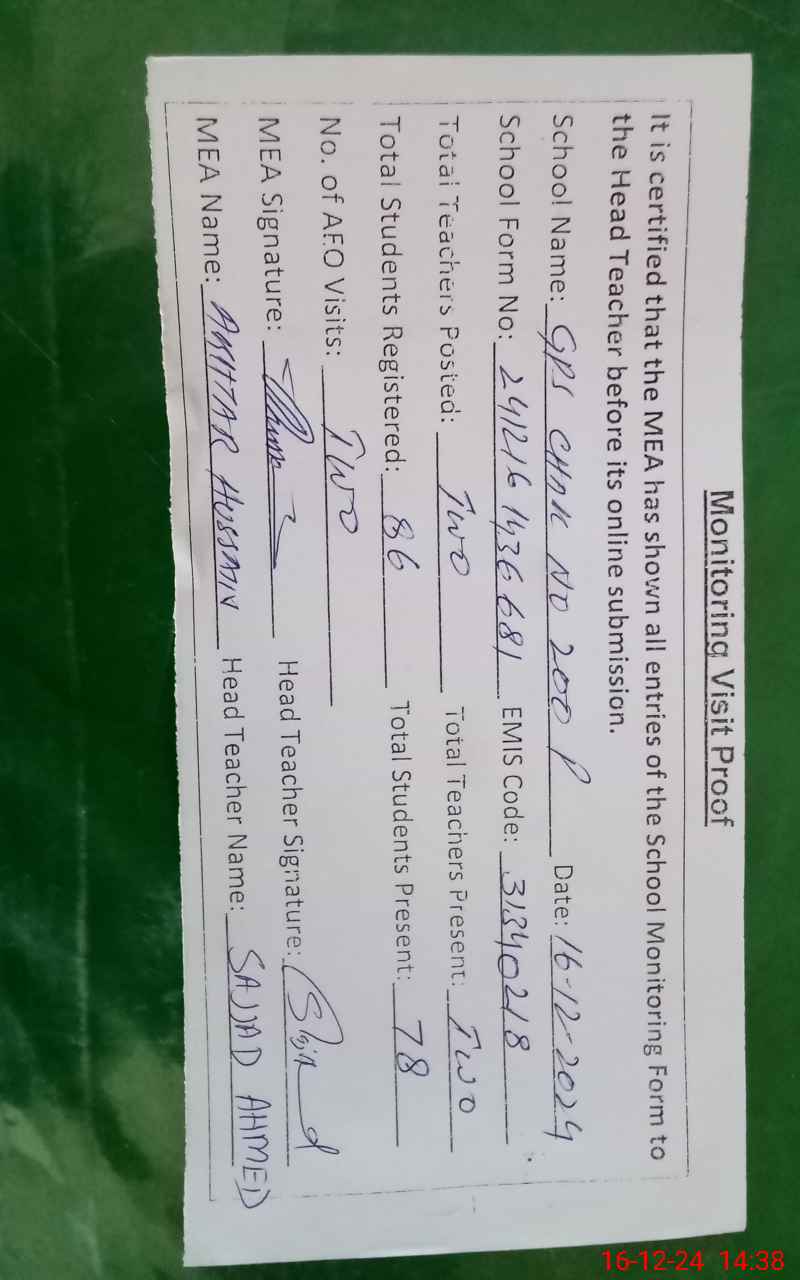 Monitoring Visit Proof
It is certified that the MEA has shown all entries of the School Monitoring Form to
the Head Teacher before its online submission.
School Name: GPS CHAK NO 200 P Date: 16-12-2024
School Form No: 241216 1436681 EMIS Code: 31340218
Total Teachers Posted: Two Total Teachers Present: Two
Total Students Registered: 86 Total Students Present: 78
No. of AEO Visits: TWO
MEA Signature: Head Teacher Signature:
MEA Name: AKHTAR HUSSAIN Head Teacher Name: SAJJAD AHMED
16-12-24 14:38